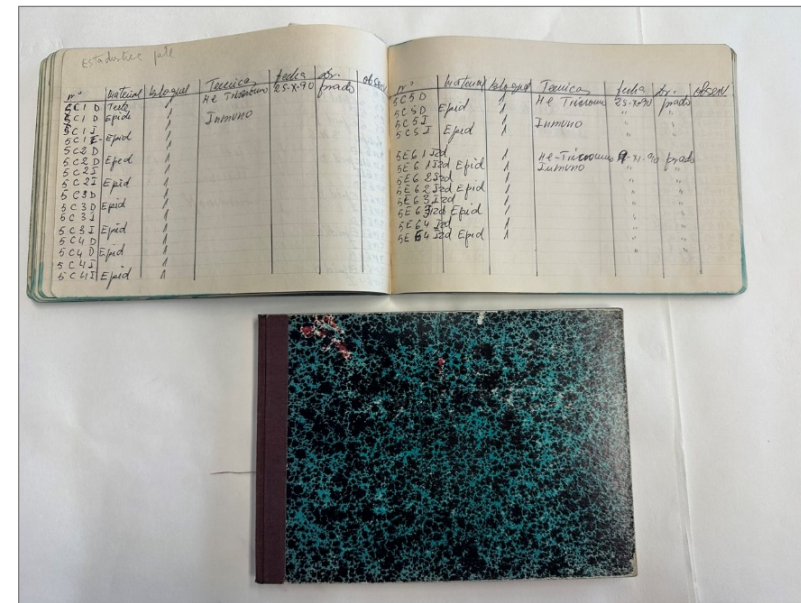 nº Material bloques Tecnicas fecha Dr. observ
5C1 D Testo 1 He Tricromico 25-X-90 prado
5C1 D Epid 1
5C1 I 1 Inmuno
5C1 I Epid 1
5C2 D 1
5C2 D Epid 1
5C2 I 1
5C2 I Epid 1
5C3 D 1
5C3 D Epid 1
5C3 I 1
5C3 I Epid 1
5C4 D 1
5C4 D Epid 1
5C4 I 1
5C4 I Epid 1
nº Material bloques Tecnicas fecha Dr. observ
5C5 D 1 He Tricromico 25-X-90 prado
5C5 D Epid 1 " "
5C5 I 1 Inmuno " "
5C5 I Epid 1 " "
5E61 Izd 1 He-Tricromico 9-XI-90 prado
5E61 Izd Epid 1 Inmuno " "
5E62 Izd 1 " "
5E62 Izd Epid 1 " "
5E63 Izd 1 " "
5E63 Izd Epid 1 " "
5E64 Izd 1 " "
5E64 Izd Epid 1 " "